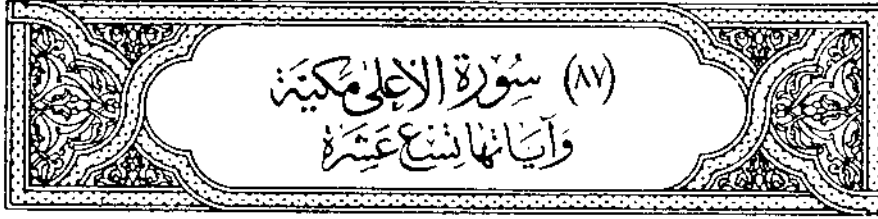 (٨٧) سُورَة الأَعْلىٰ مَكيَّة
وَآيَاتهَا تِسْع عَشْرَة